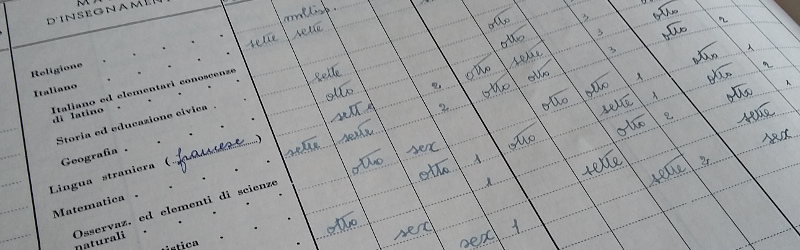 D'INSEGNAMEN
Religione
Italiano
Italiano ed elementari conoscenze
di latino
Storia ed educazione civica
Geografia
Lingua straniera (francese)
Matematica
Osservaz. ed elementi di scienze
naturali
istica
sette sette otto 3 otto
otto 3 otto 2
sette otto sette 3 otto 1
otto 2 otto otto otto 2
sette 2 otto otto 1 otto 1
sette sette otto sette 1 sette
otto sex otto otto 2 sex
otto 1 sette
1 sette 2
otto sex 1
sex